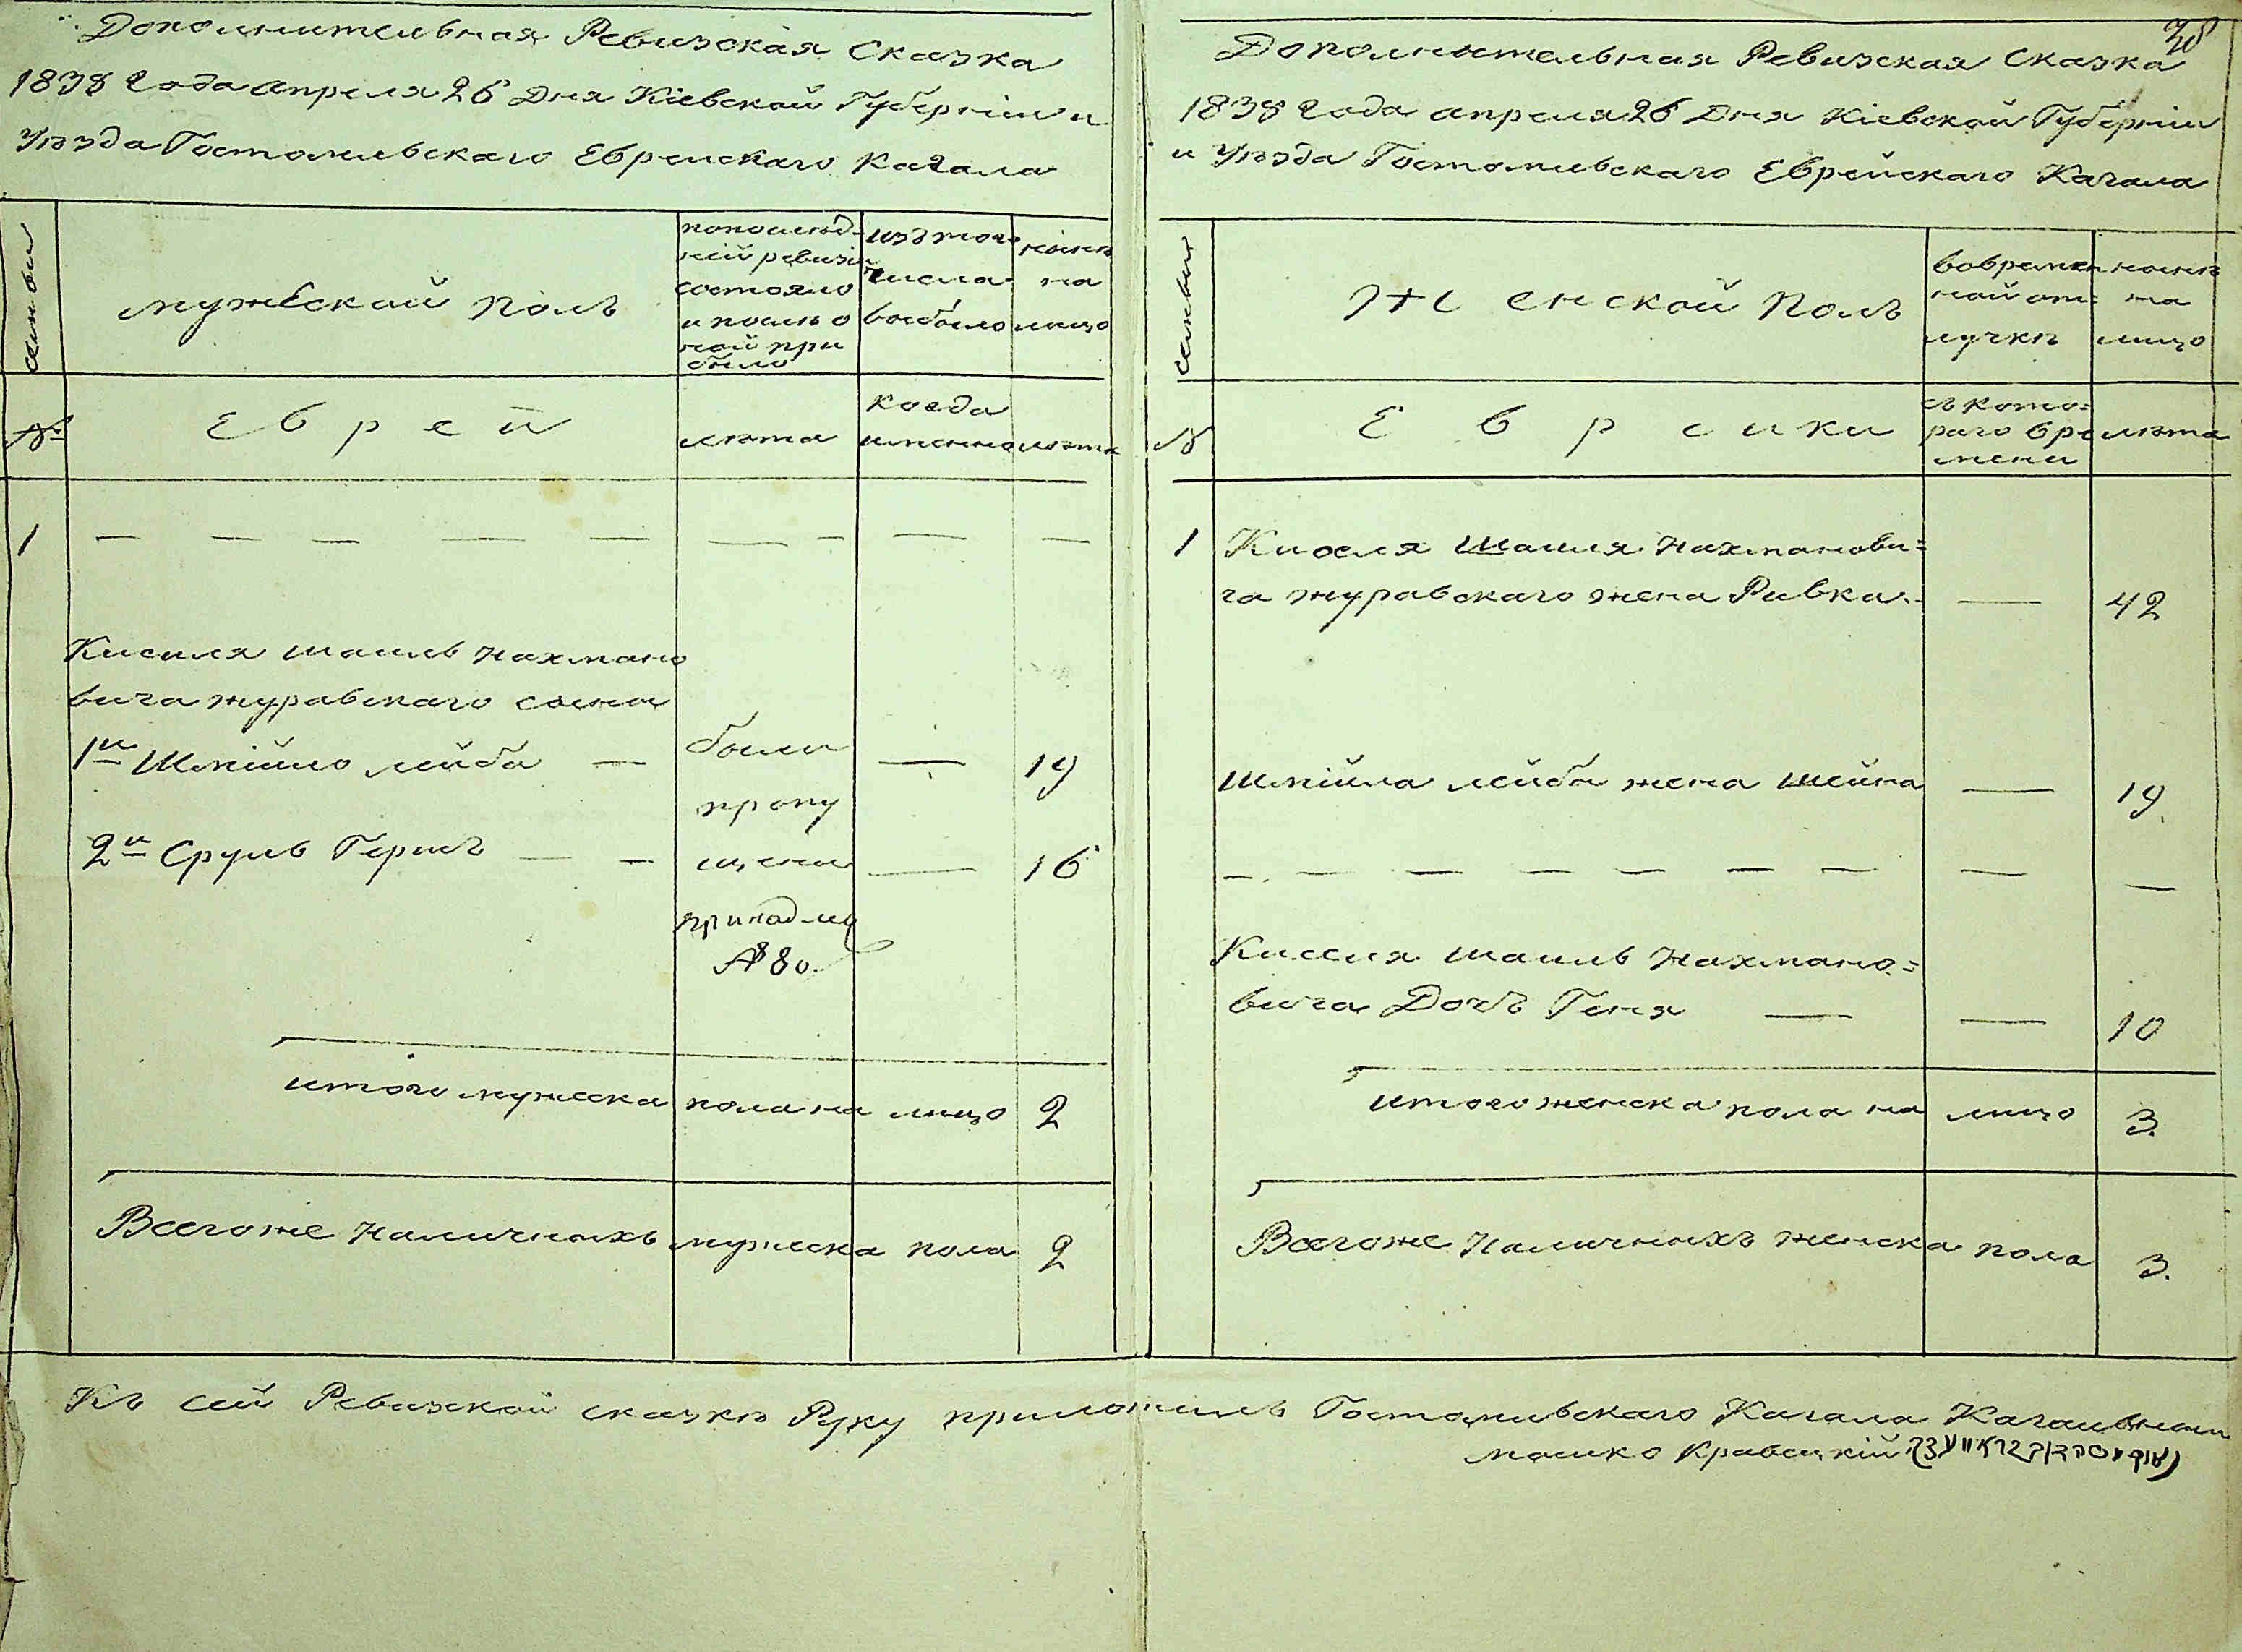 Дополнительная Ревизская Сказка
1838 Года апреля 26 Дня Кіевской Губерніи и
Уѣзда Гостомельскаго Еврейскаго Кагала
семьи
мужеской полъ
попослѣд-
ней ревизіи
состояло
и послѣ о
ной при
было
изъ того
числа
выбыло
нынѣ
на
лицо
№
Еврей
лѣта
когда
именно
лѣта
1
Киселя Шаиль Нахмано
вича журавскаго сыны
1й Шмійло лейба
19
2й Сруль Гершъ
16
были
пропу
щены
принадлед
№ 80.
итого мужеска пола на лицо 2
Всегоже Наличныхъ мужеска пола 2
38
Дополнительная Ревизская Сказка
1838 Года апреля 26 Дня Кіевской Губерніи
и Уѣзда Гостомльскаго Еврейскаго Кагала
семьи
Женской Полъ
вовремен
ной от=
лучкѣ
нынѣ
на
лицо
№
Еврейки
съ кото=
раго вре
мени
лѣта
1
Киселя Шаиля Нахманови=
ча журавскаго жена Ривка
42
Шмійла лейбы жена Шейна
19
Киселя Шаиль Нахмано=
вича Дочь Геня
10
итого женска пола на лицо 3.
Всегоже Наличныхъ женска пола 3.
Къ сей Ревизской сказкѣ Руку приложилъ Гостомельскаго Кагала Кагальный
мошко Кравецкій